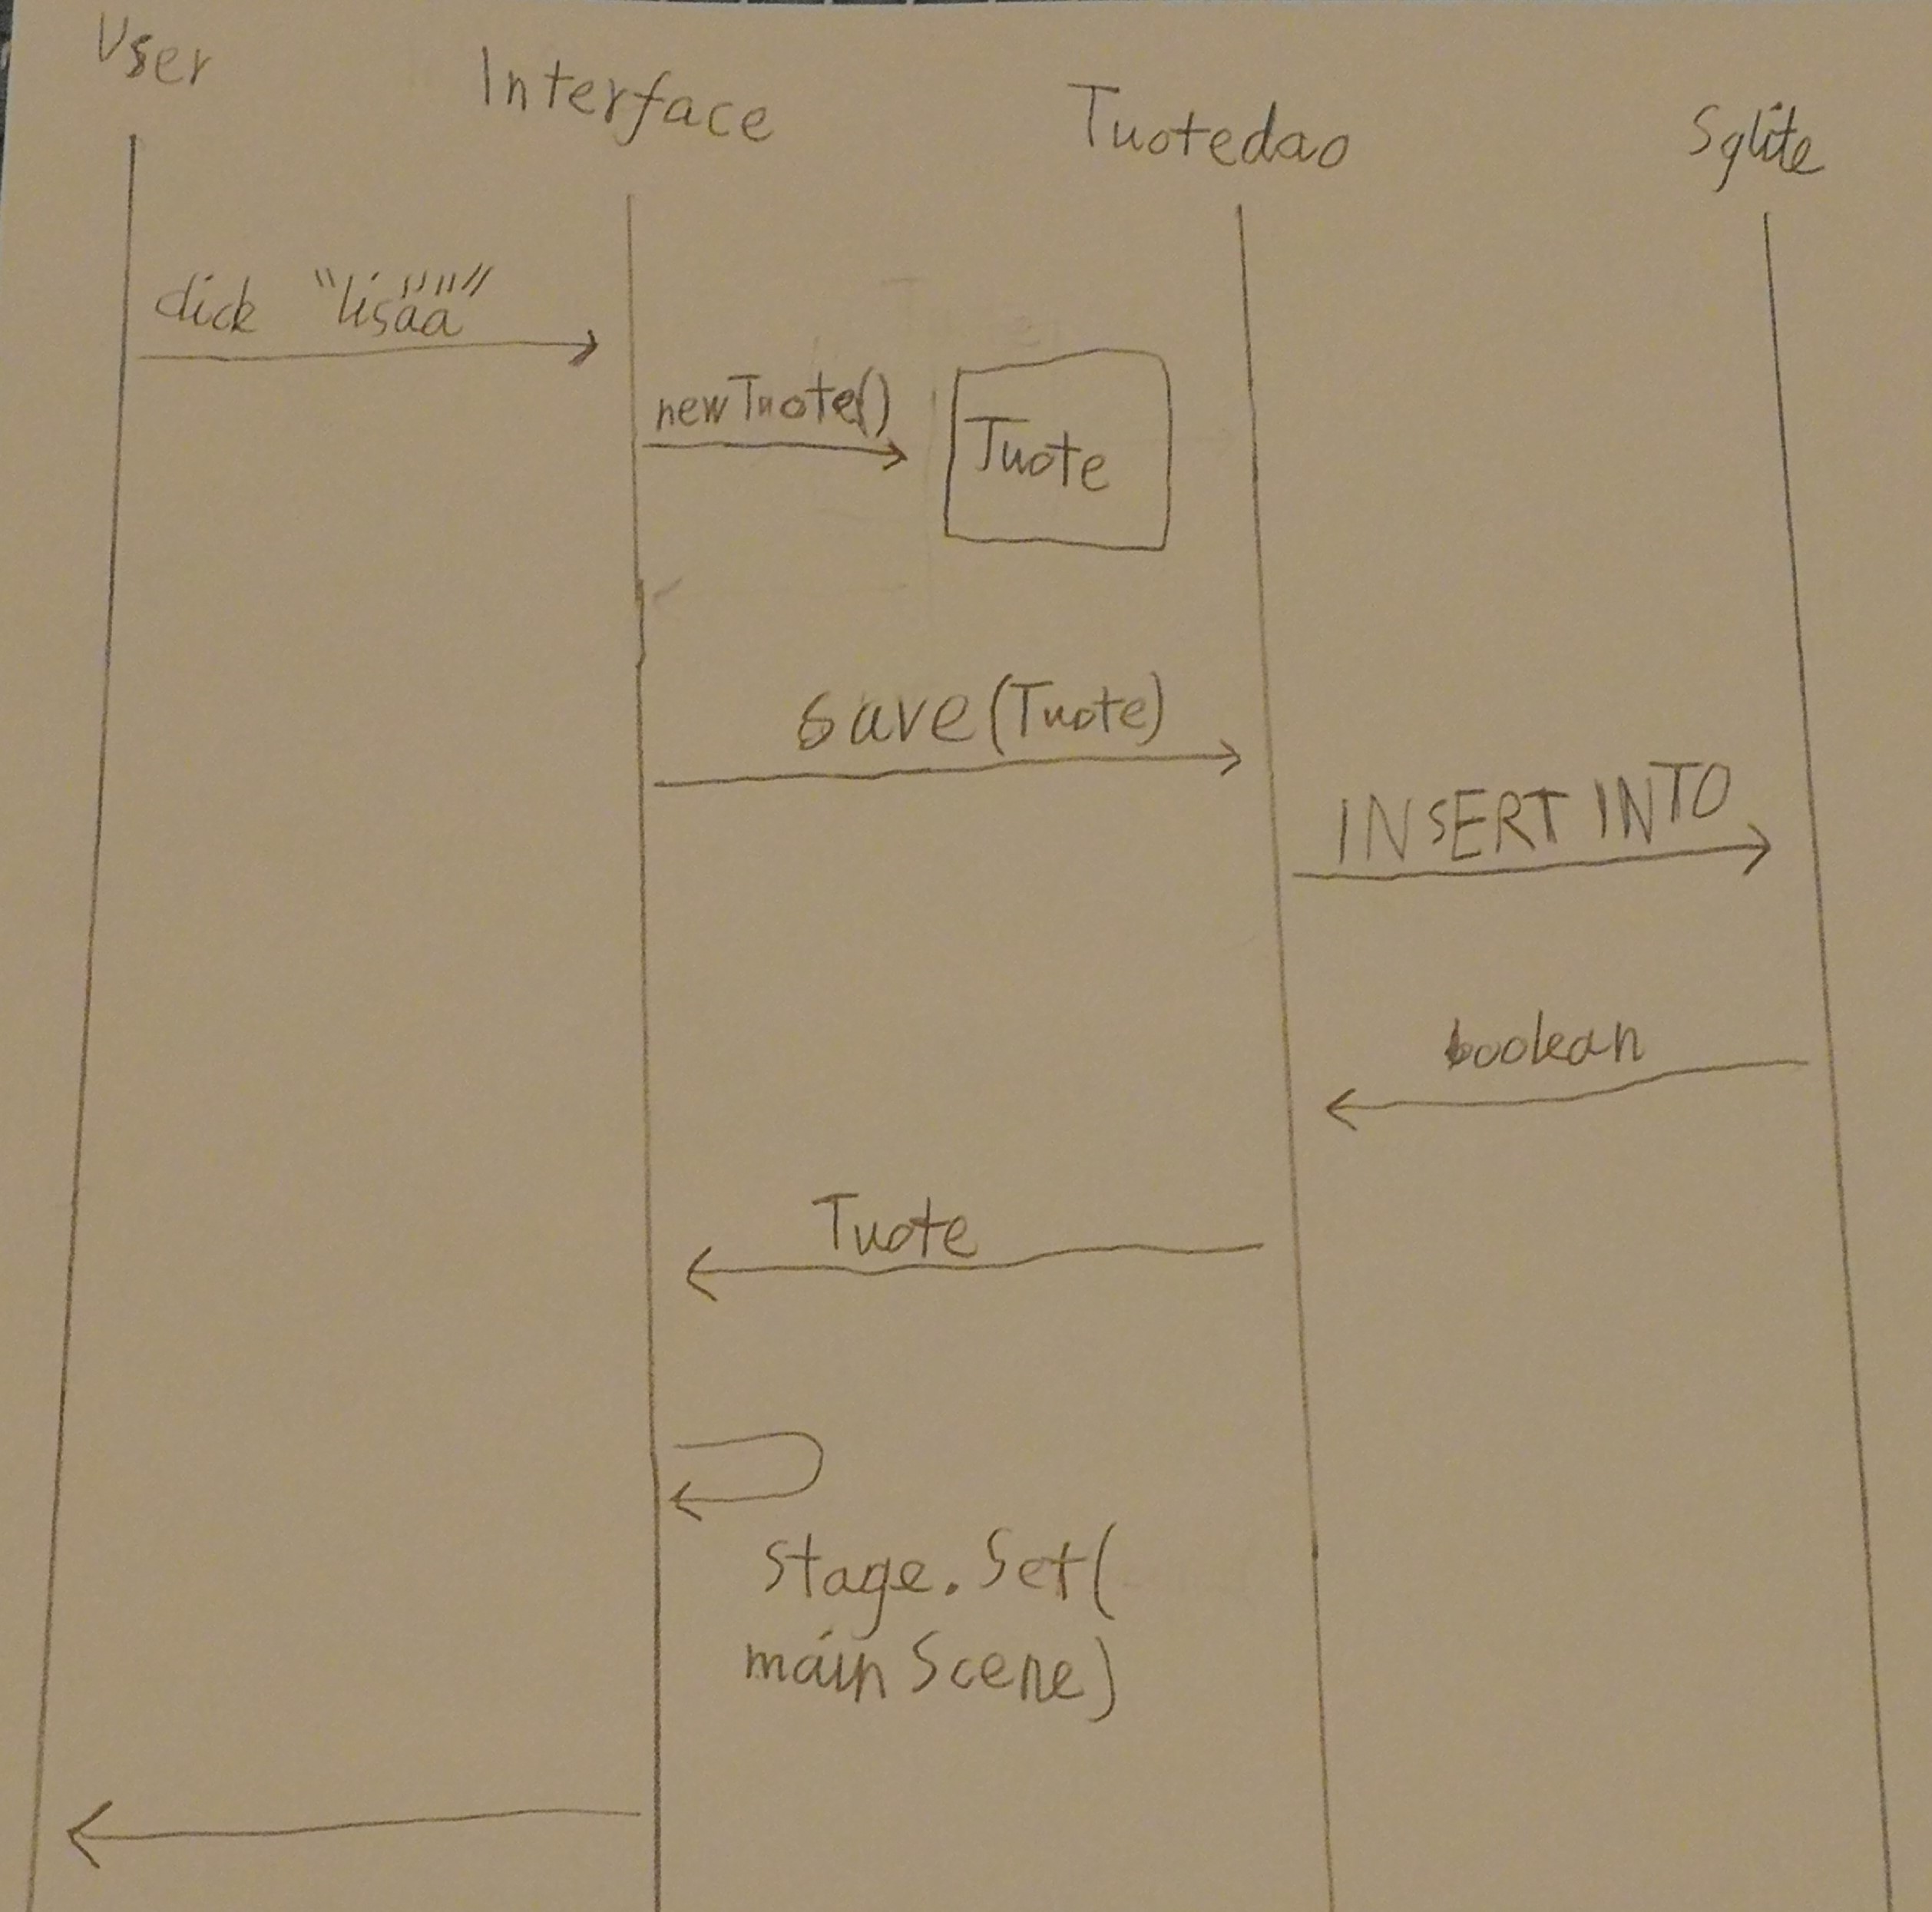 User
Interface
Tuotedao
Sqlite
click "lisää"
newTuote()
Tuote
save(Tuote)
INSERT INTO
boolean
Tuote
stage.Set(
mainScene)